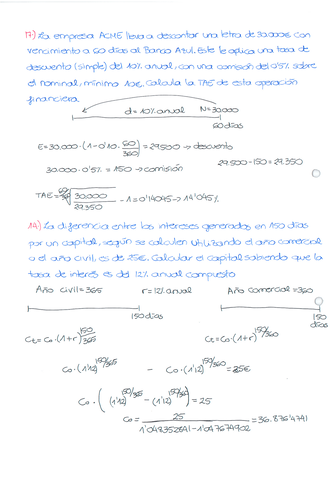 17) La empresa ACME lleva a descontar una letra de 30.000€ con
vencimiento a 60 días al Banco Azul. Este le aplica una tasa de
descuento (simple) del 10% anual, con una comisión del 0'5% sobre
el nominal, mínimo 10€. Calcula la TAE de esta operación
financiera.
d=10% anual N=30.000
60 días
E=30.000·(1-0'10·60/360)=29.500→descuento
30.000·0'5%=150→comisión 29.500-150=29.350
-1=0'14045→14'045%
14) La diferencia entre los intereses generados en 150 días
por un capital, según se calculen utilizando el año comercial
o el año civil, es de 25€. Calcular el capital sabiendo que la
tasa de interés es del 12% anual compuesto
Año civil=365 r=12% anual Año comercial=360
150 días 150 días
Ct=Co·(1+r)^150/365 Ct=Co·(1+r)^150/360
Co·(1'12)^150/365 - Co·(1'12)^150/360=25€
Co·((1'12)^150/365-(1'12)^150/360)=25